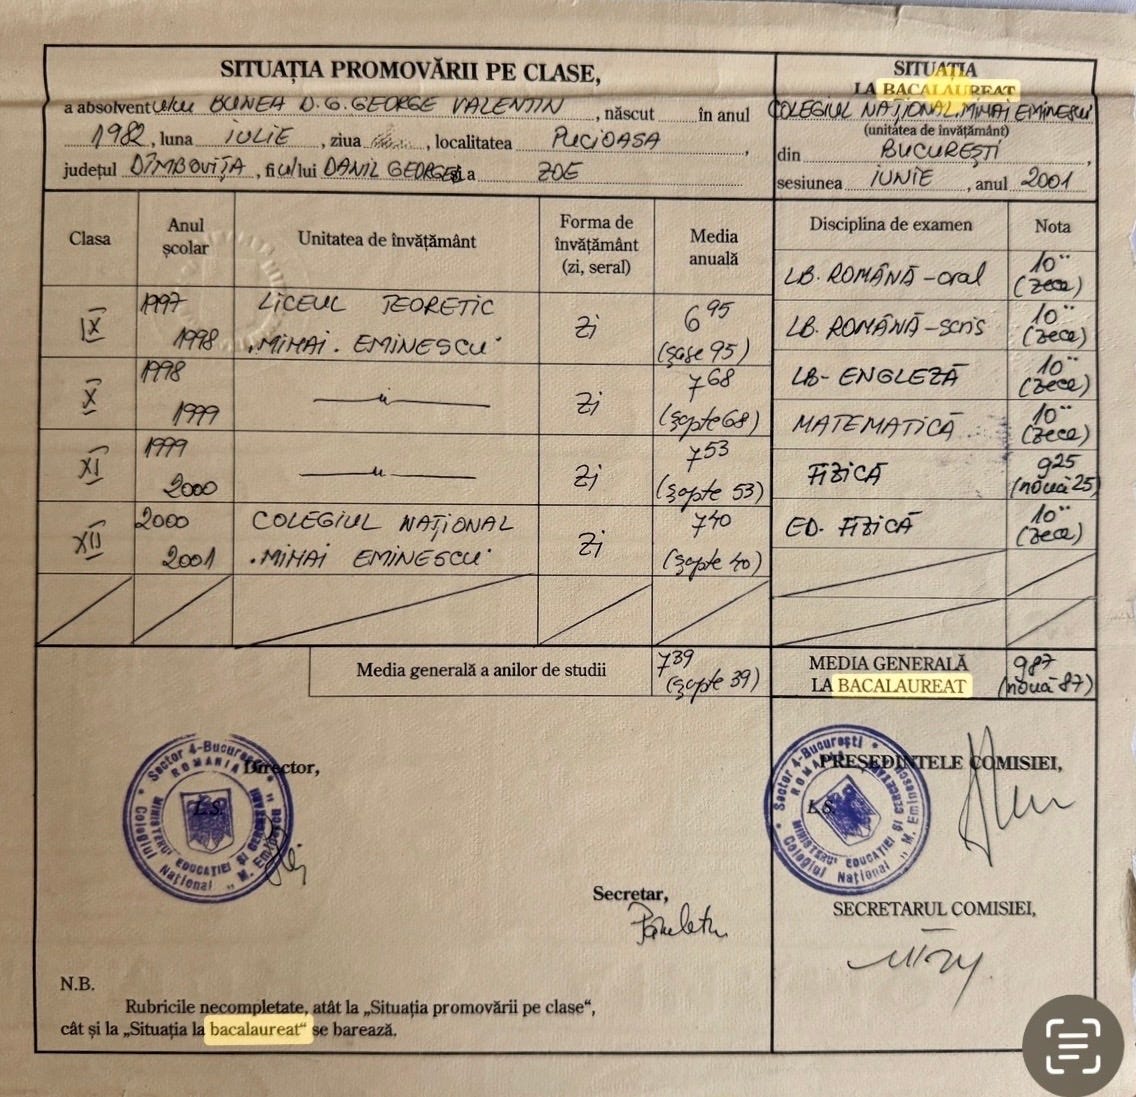 SITUAȚIA PROMOVĂRII PE CLASE,
a absolventului BUNEA D.G. GEORGE VALENTIN, născut în anul
1982, luna IULIE, ziua, localitatea PUCIOASA,
județul DÎMBOVIȚA, fiului DANIL GEORGE și a ZOE
Clasa Anul școlar Unitatea de învățământ Forma de învățământ (zi, seral) Media anuală
IX 1997 1998 LICEUL TEORETIC "MIHAI EMINESCU" Zi 6 95 (șase 95)
X 1998 1999 —"— Zi 7 68 (șapte 68)
XI 1999 2000 —"— Zi 7 53 (șapte 53)
XII 2000 2001 COLEGIUL NAȚIONAL "MIHAI EMINESCU" Zi 7 40 (șapte 40)
Media generală a anilor de studii 7 39 (șapte 39)
Director,
L.S.
Sector 4-București
ROMANIA
MINISTERUL EDUCAȚIEI ȘI CERCETĂRII
Colegiul Național "M. Eminescu"
Secretar,
N.B.
Rubricile necompletate, atât la „Situația promovării pe clase“,
cât și la „Situația la bacalaureat“ se barează.
SITUAȚIA
LA BACALAUREAT
COLEGIUL NAȚIONAL MIHAI EMINESCU
(unitatea de învățământ)
din BUCUREȘTI,
sesiunea IUNIE, anul 2001
Disciplina de examen Nota
LB. ROMÂNĂ - oral 10 (zece)
LB. ROMÂNĂ - scris 10 (zece)
LB - ENGLEZĂ 10 (zece)
MATEMATICĂ 10 (zece)
FIZICĂ 9 25 (nouă 25)
ED. FIZICĂ 10 (zece)
MEDIA GENERALĂ
LA BACALAUREAT 9 87 (nouă 87)
PREȘEDINTELE COMISIEI,
L.S.
Sector 4-București
ROMANIA
MINISTERUL EDUCAȚIEI ȘI CERCETĂRII
Colegiul Național "M. Eminescu"
SECRETARUL COMISIEI,